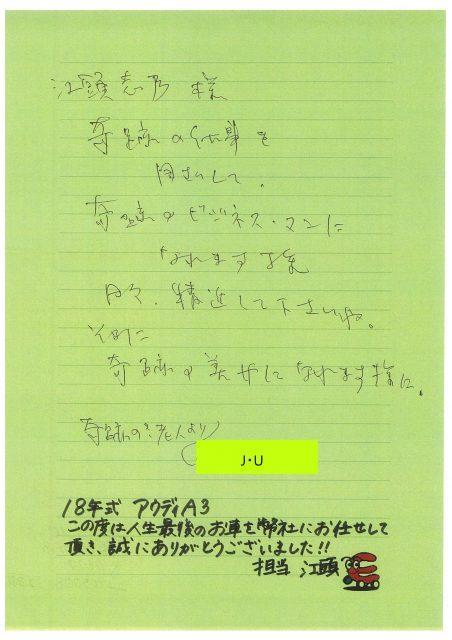 江頭志乃 様
奇跡の仕事を
目指して、
奇跡のビジネス・マンに
なれます様
日々、精進して下さいね。
ソノ上に
奇跡の美女になれます様に。
奇跡の老人より
J・U
18年式 アウディA3
この度は人生最後のお車を弊社にお任せして
頂き、誠にありがとうございました!!
担当 江頭